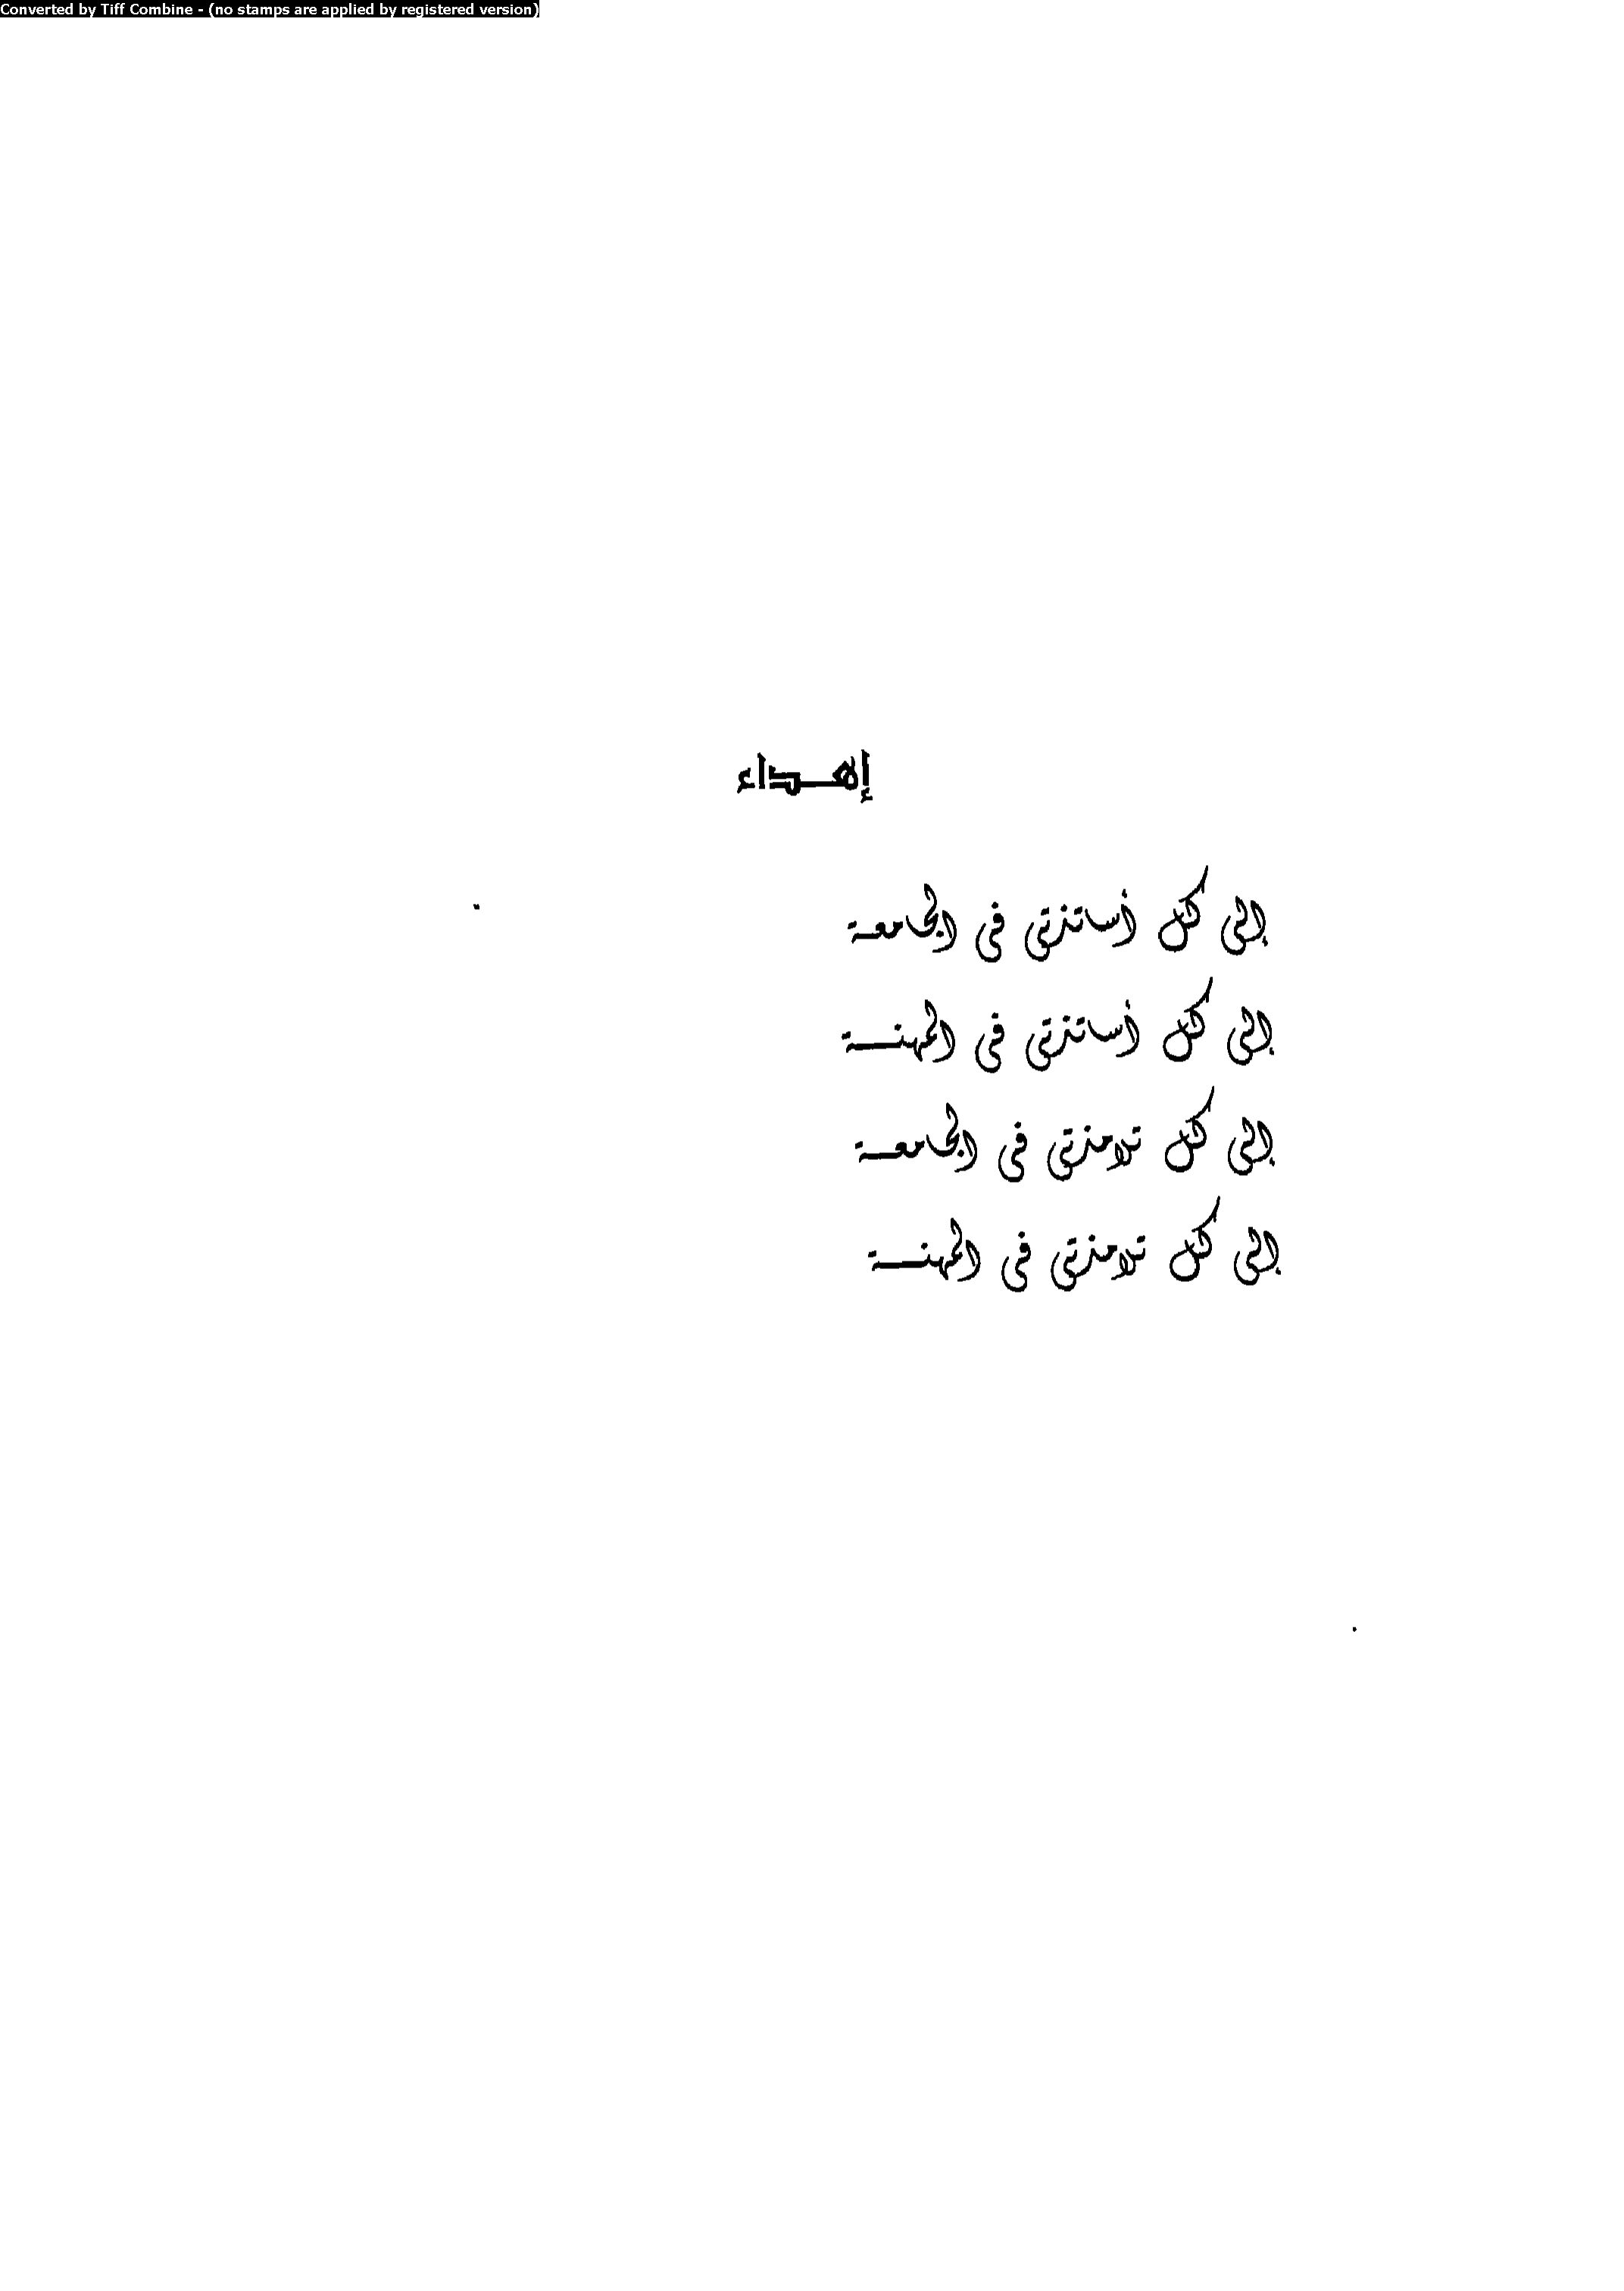 Converted by Tiff Combine - (no stamps are applied by registered version)
إهداء
إلى كل أستذتى فى الجامعة
إلى كل أستذتى فى المهنة
إلى كل تلامذتى فى الجامعة
إلى كل تلامذتى فى المهنة